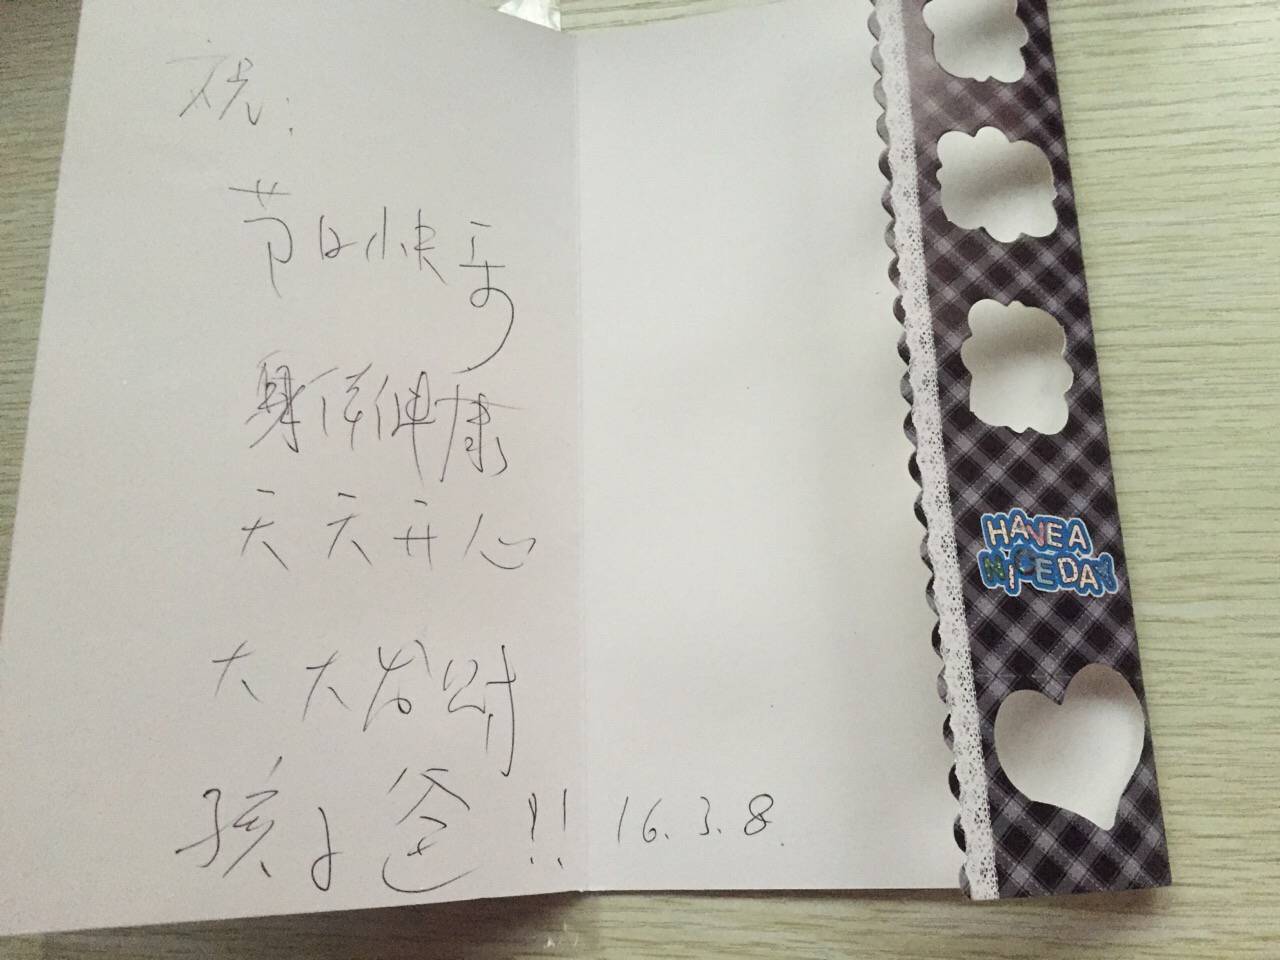 祝:
节日快乐
身体健康
天天开心
大大发财
孩子爸!! 16.3.8.
HAVE A
NICE DAY